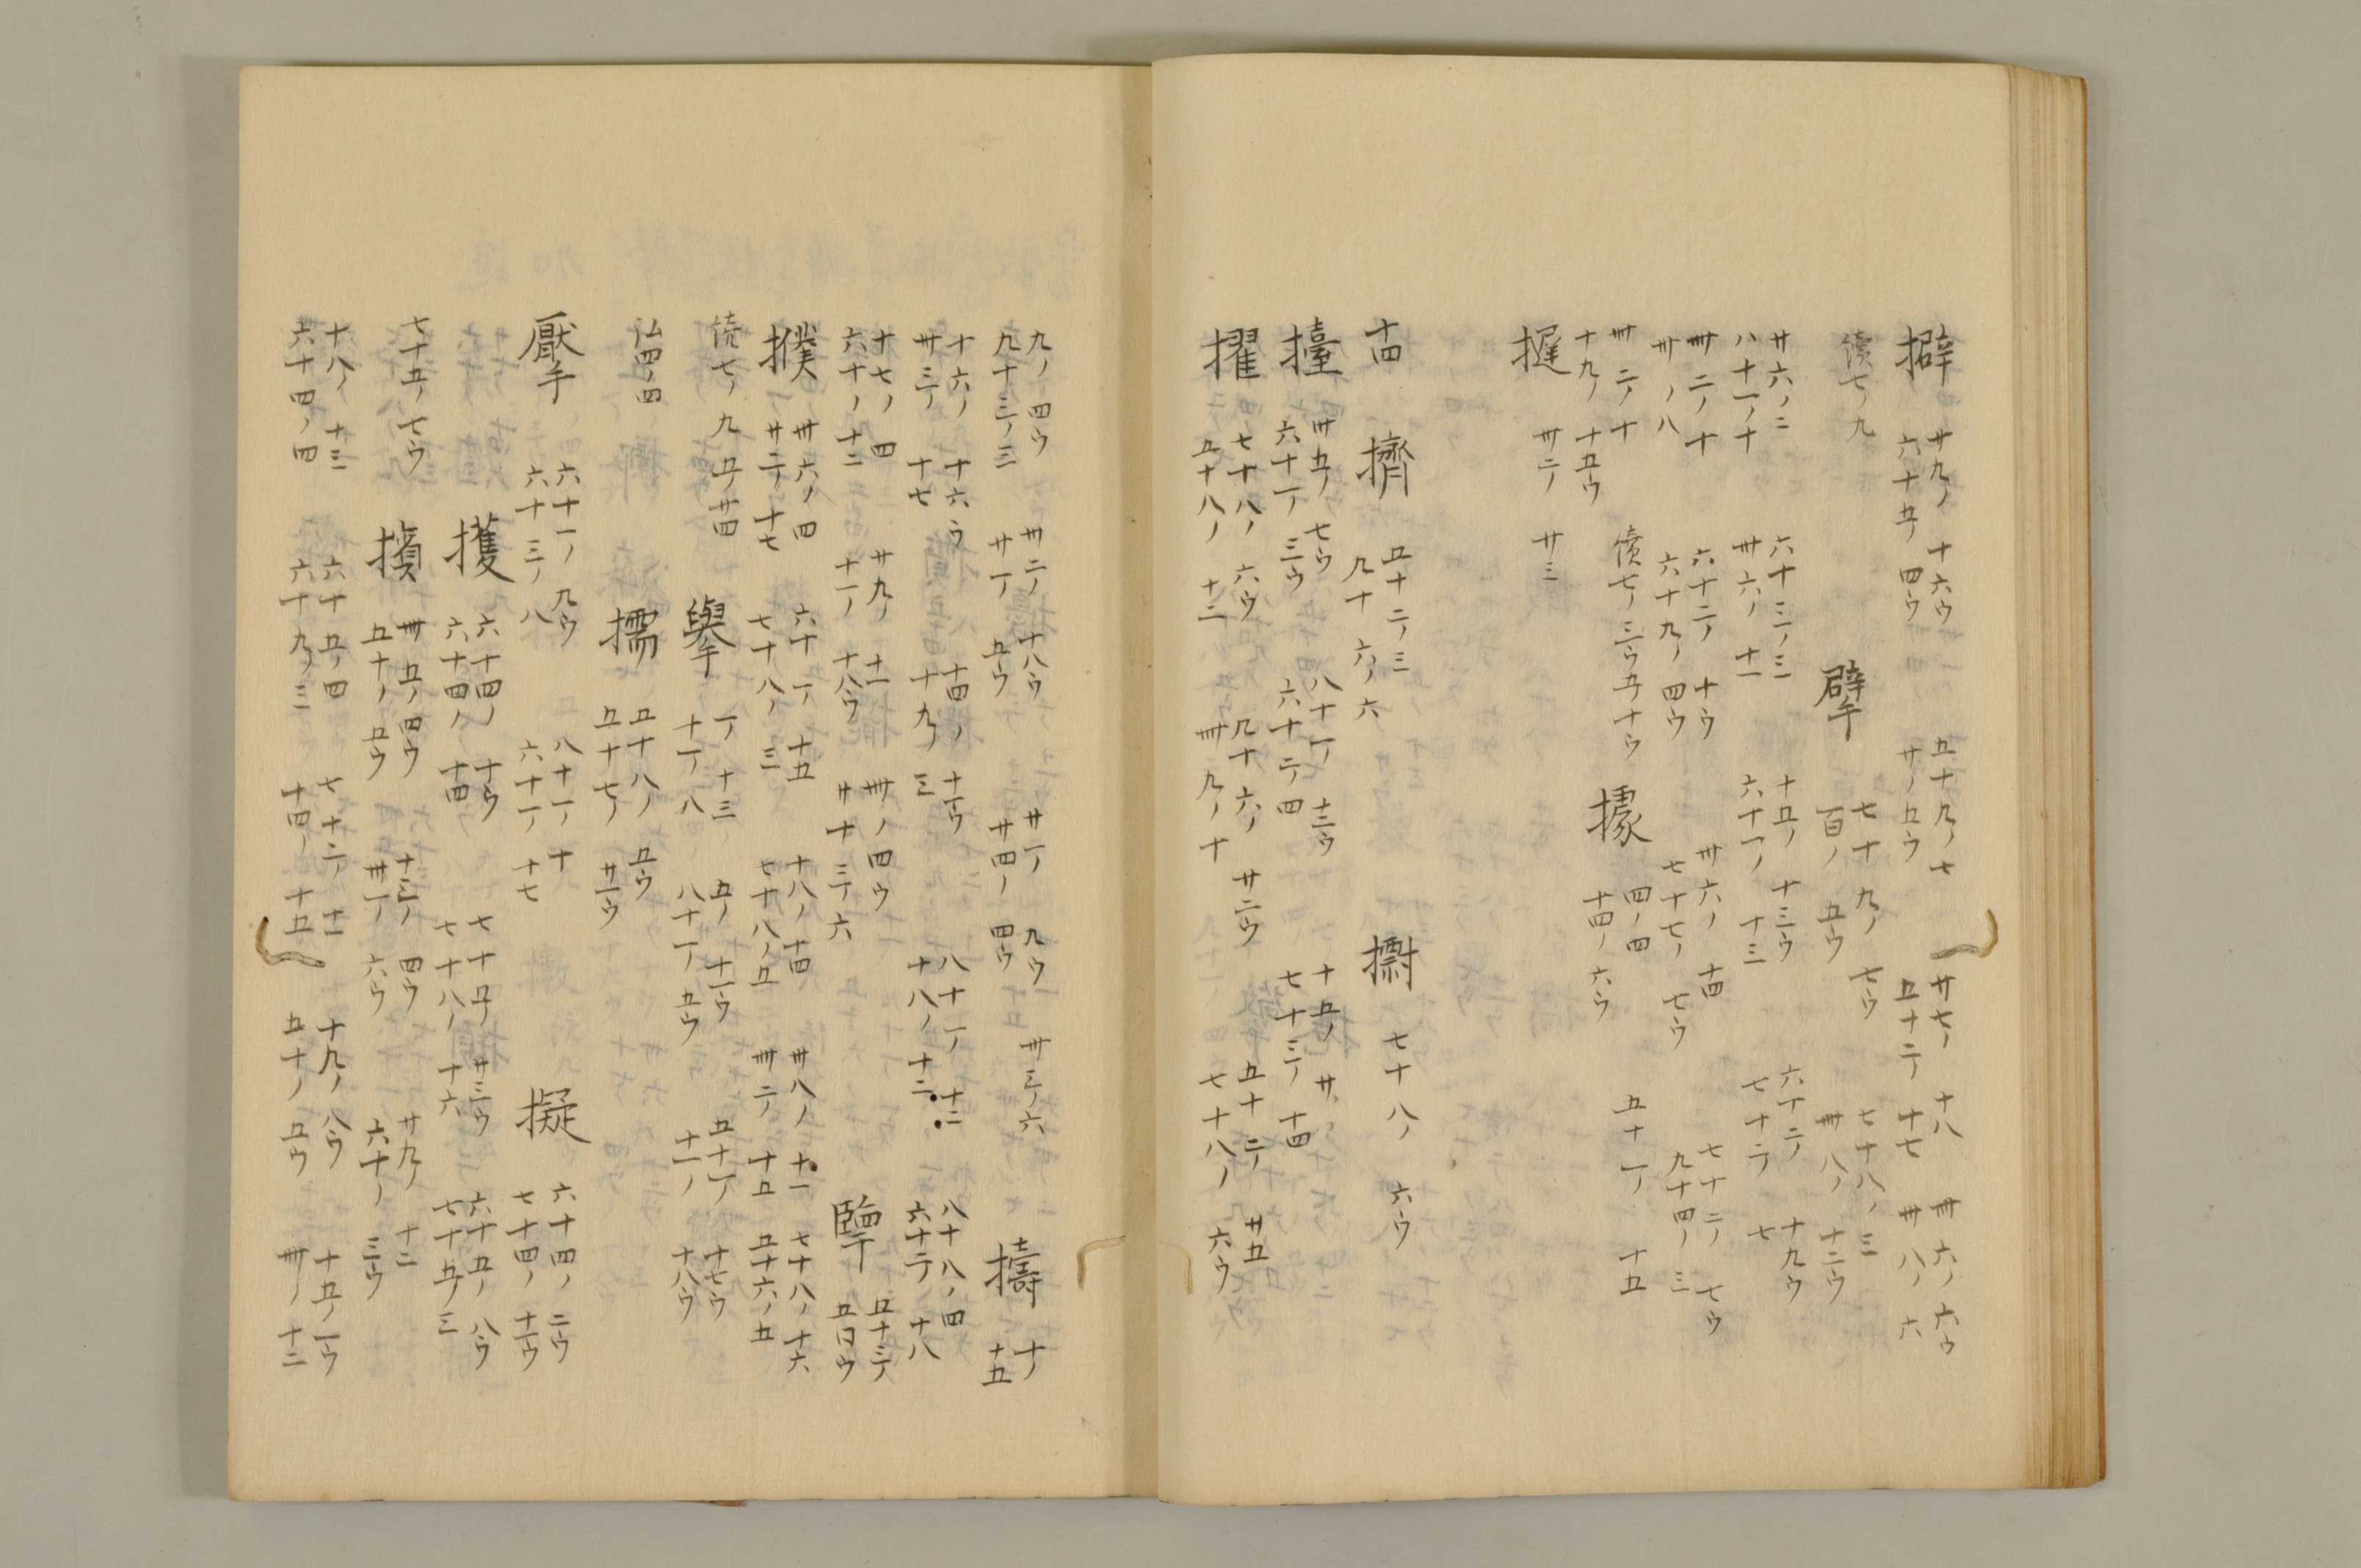 擗 廿九ノ十六ウ 五十九ノ七 廿七ノ十八 卅六ノ六ウ
六十五ノ四ウ 廿ノ五ウ 五十二ノ十七 卅八ノ六
續七ノ九 擘 七十九ノ七ウ 七十八ノ三
百ノ五ウ 卅八ノ十二ウ
廿六ノ二 六十三ノ三 十五ノ十三ウ 六十二ノ十九ウ
八十一ノ十 卌六ノ十一 六十一ノ十三 七十二ノ七
卌二ノ十 六十二ノ十ウ 卅六ノ十四 七十二ノ七ウ
卅ノ八 六十九ノ四ウ 七十七ノ七ウ 九十四ノ三
卌二ノ十 續七ノ三ウ五ノ十ウ 據 四ノ四 五十一ノ十五
十九ノ十五ウ 十四ノ六ウ
卅二ノ廿三
十四 擠 五十二ノ三 七十八ノ六ウ
九十六ノ六
擡 卌五ノ七ウ 八十一ノ十三ウ 十五ノ廿
六十一ノ三ウ 六十二ノ四 七十三ノ十四
擢 七十八ノ六ウ 九十六ノ廿二ウ 五十二ノ廿五
五十八ノ十二 卌九ノ十 七十八ノ六ウ
九ノ四ウ 卅二ノ十八ウ 廿一ノ九ウ 卅三ノ六 擣 十ノ
九十三ノ三 廿一ノ五ウ 廿四ノ四ウ 十五
十六ノ十六ウ 十四ノ十一ウ 八十一ノ十二 八十八ノ四
卅三ノ十七 十九ノ三 十八ノ十二 六十二ノ十八
十七ノ四 廿九ノ十一 卌ノ四ウ 五十三ノ
六十ノ十二 十一ノ十八ウ 廿十三ノ六
撲 卅六ノ四 六十一ノ十五 十八ノ十四 卅八ノ十一 七十八ノ十六
廿二ノ十七 七十八ノ三 七十八ノ五 卌二ノ十五 五十六ノ五
續七ノ九五ノ廿四 擧 一ノ十三 五ノ十一ウ 五十一ノ十七ウ
十一ノ八 八十一ノ五ウ 十一ノ十八ウ
弘四ノ四 擩 五十八ノ五ウ
五十七ノ廿一ウ
擫 六十一ノ九ウ 八十一ノ十 擬 六十四ノ二ウ
六十三ノ八 六十一ノ十七 七十四ノ十一ウ
擭 六十四ノ十ウ 七十五ノ廿三ウ 六十五ノ八ウ
六十四ノ十四 七十八ノ十六 七十五ノ三
七十五ノ七ウ 擯 卌五ノ四ウ 十三ノ四ウ 廿九ノ十二
五十ノ五ウ 卌一ノ六ウ 六十ノ三ウ
十八ノ十三 六十五ノ四 七十二ノ十一 十九ノ八ウ 十五ノ一ウ
六十四ノ四 六十九ノ三 十四ノ十五 五十ノ五ウ 卌ノ十二